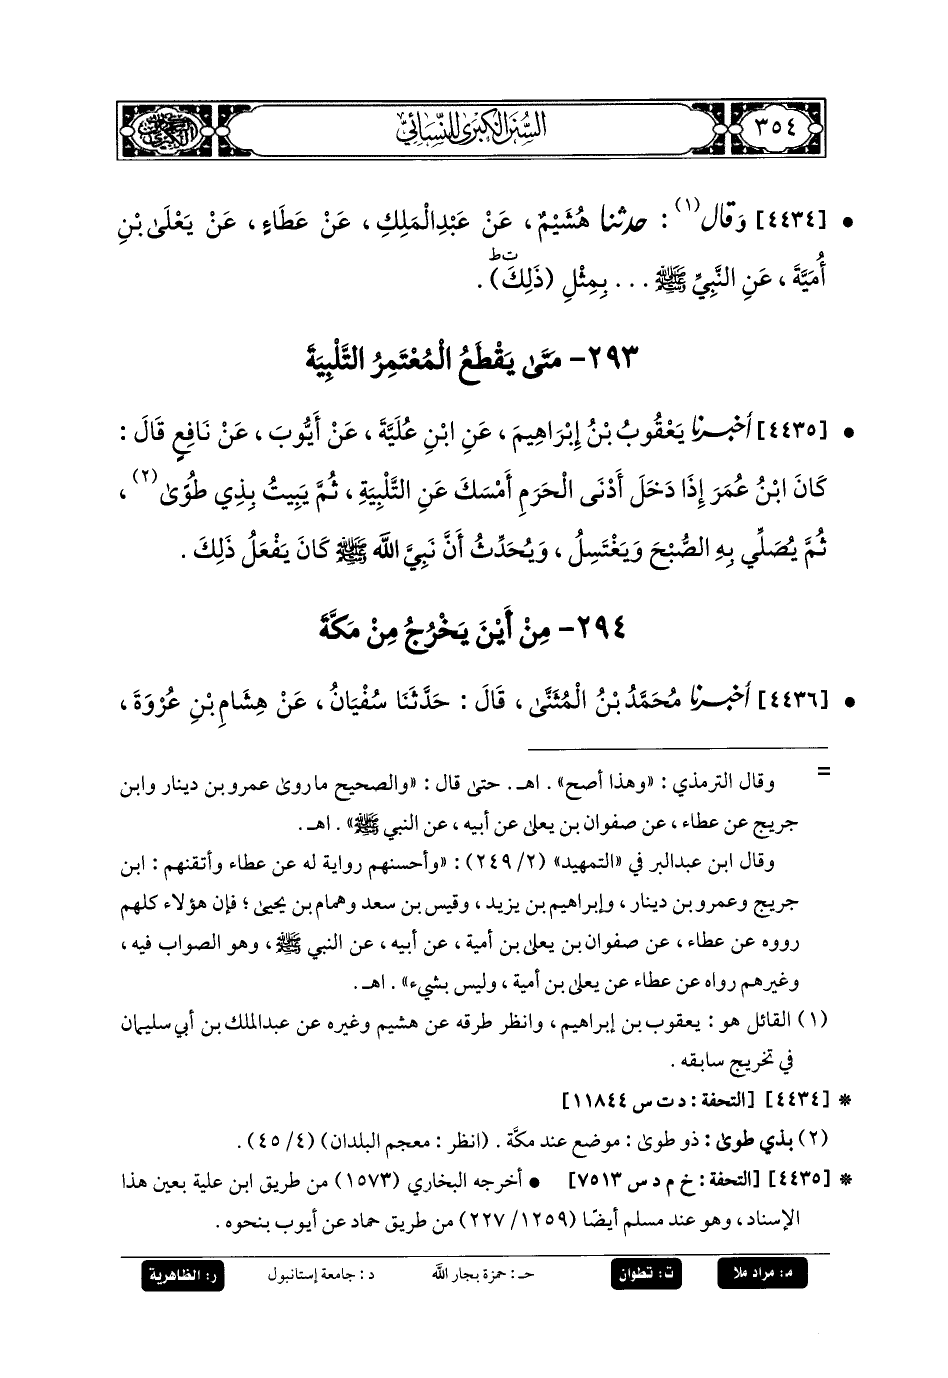 ٣٥٤ السنن الكبرى للنسائي
• [٤٤٣٤] وَقَال(١) : حدثنا هُشَيْمٌ ، عَنْ عَبْدِالْمَلِكِ ، عَنْ عَطَاءٍ ، عَنْ يَعْلَىٰ بْنِ
أُمَيَّةَ ، عَنِ النَّبِيِّ ﷺ . . . بِمِثْلِ (ذَلِكَ) .
ت ط
٢٩٣- مَتَىٰ يَقْطَعُ الْمُعْتَمِرُ التَّلْبِيَةَ
• [٤٤٣٥] أخبرنا يَعْقُوبُ بْنُ إِبْرَاهِيمَ ، عَنِ ابْنِ عُلَيَّةَ ، عَنْ أَيُّوبَ ، عَنْ نَافِعٍ قَالَ :
كَانَ ابْنُ عُمَرَ إِذَا دَخَلَ أَدْنَى الْحَرَمِ أَمْسَكَ عَنِ التَّلْبِيَةِ ، ثُمَّ يَبِيتُ بِذِي طُوًىٰ(٢) ،
ثُمَّ يُصَلِّي بِهِ الصُّبْحَ وَيَغْتَسِلُ ، وَيُحَدِّثُ أَنَّ نَبِيَّ اللَّهِ ﷺ كَانَ يَفْعَلُ ذَلِكَ .
٢٩٤- مِنْ أَيْنَ يَخْرُجُ مِنْ مَكَّةَ
• [٤٤٣٦] أخبرنا مُحَمَّدُ بْنُ الْمُثَنَّىٰ ، قَالَ : حَدَّثَنَا سُفْيَانُ ، عَنْ هِشَامِ بْنِ عُرْوَةَ ،
= وقال الترمذي : «وهذا أصح» . اهـ. حتىٰ قال : «والصحيح ما روىٰ عمرو بن دينار وابن
جريج عن عطاء ، عن صفوان بن يعلىٰ عن أبيه ، عن النبي ﷺ» . اهـ.
وقال ابن عبدالبر في «التمهيد» (٢/ ٢٤٩) : «وأحسنهم رواية له عن عطاء وأتقنهم : ابن
جريج وعمرو بن دينار ، وإبراهيم بن يزيد ، وقيس بن سعد وهمام بن يحيىٰ ؛ فإن هؤلاء كلهم
رووه عن عطاء ، عن صفوان بن يعلىٰ بن أمية ، عن أبيه ، عن النبي ﷺ ، وهو الصواب فيه ،
وغيرهم رواه عن عطاء عن يعلىٰ بن أمية ، وليس بشيء» . اهـ.
(١) القائل هو : يعقوب بن إبراهيم ، وانظر طرقه عن هشيم وغيره عن عبدالملك بن أبي سليمان
في تخريج سابقه .
* [٤٤٣٤] [التحفة : د ت س ١١٨٤٤]
(٢) بذي طوىٰ : ذو طوىٰ : موضع عند مكة . (انظر : معجم البلدان) (٤/ ٤٥) .
* [٤٤٣٥] [التحفة : خ م د س ٧٥١٣] • أخرجه البخاري (١٥٧٣) من طريق ابن علية بعين هذا
الإسناد ، وهو عند مسلم أيضًا (١٢٥٩/ ٢٢٧) من طريق حماد عن أيوب بنحوه .
م: مراد ملا ت: تطوان حـ: حمزة بجار الله د: جامعة إستانبول ر: الظاهرية